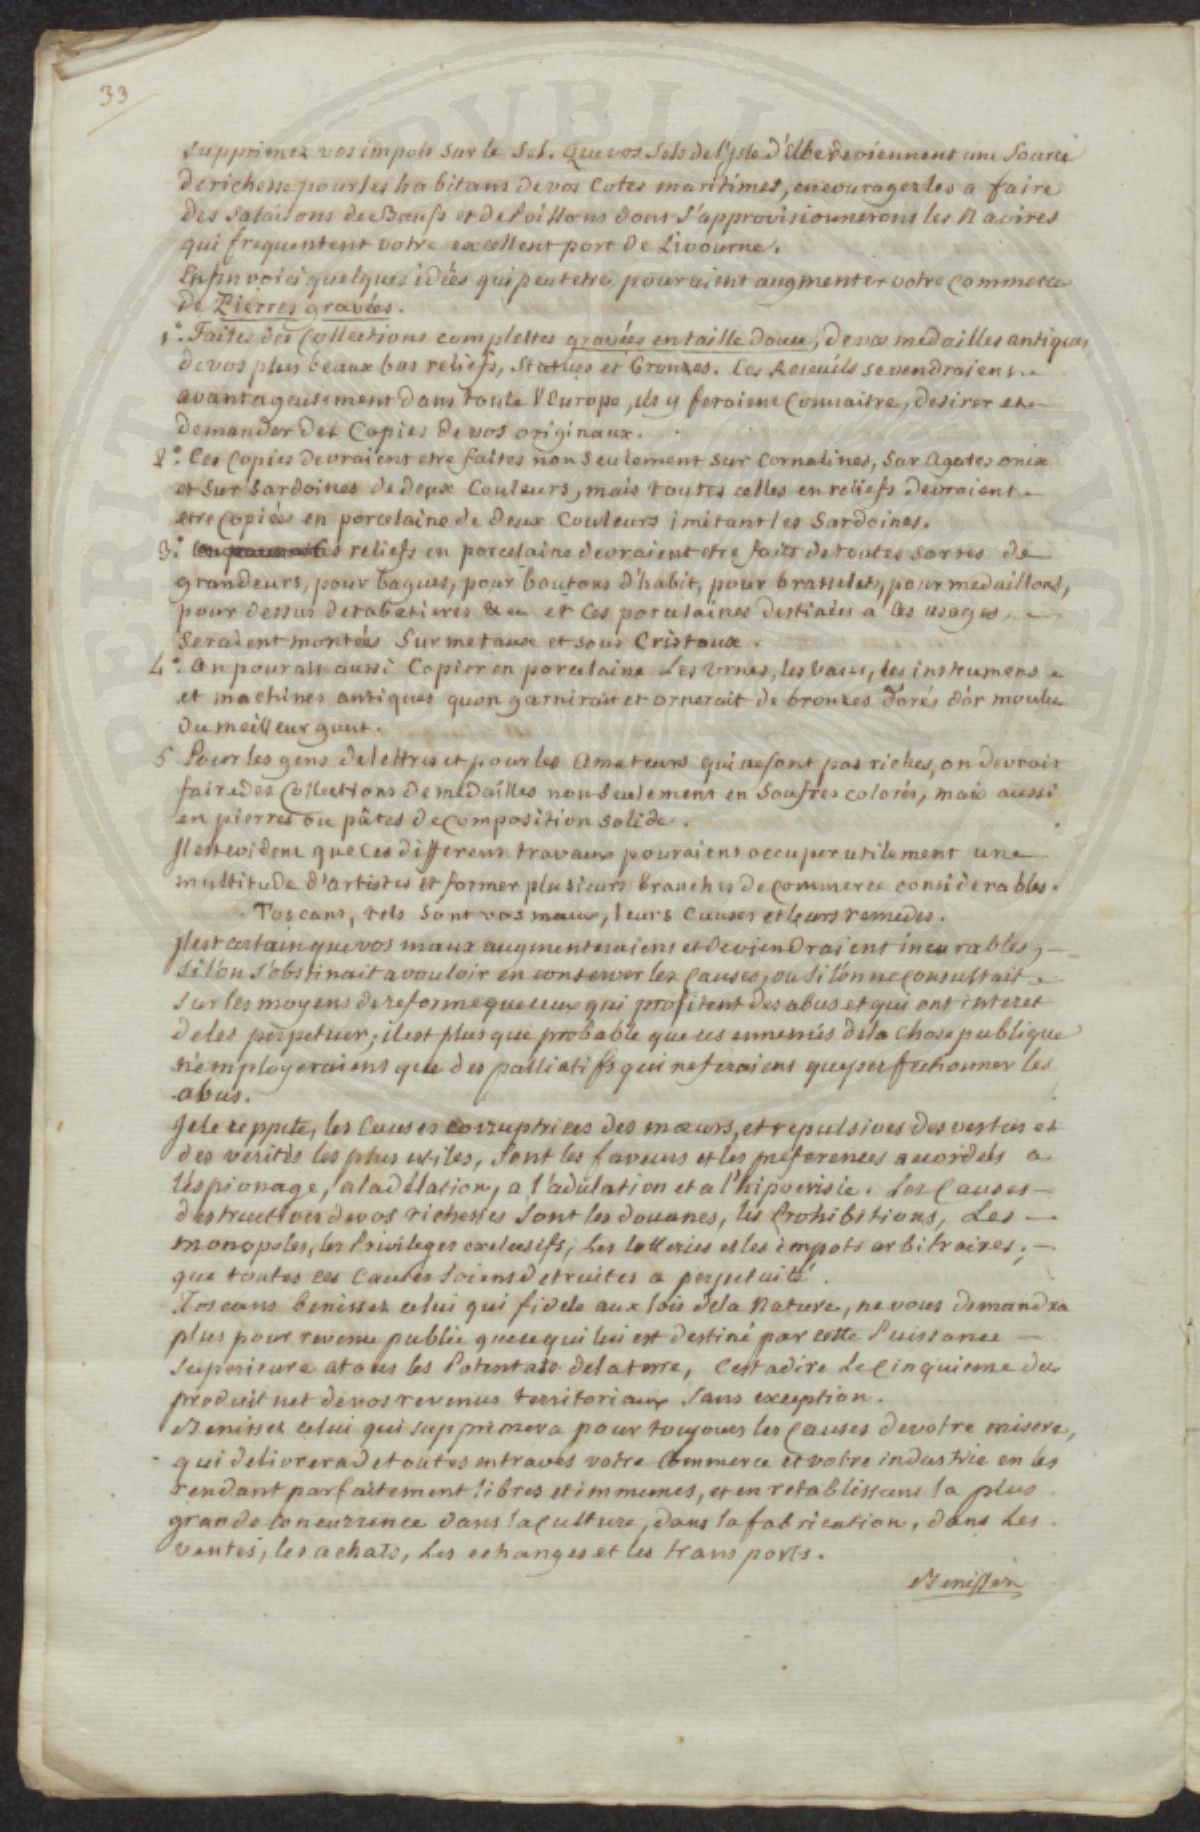 33
supprimez vos impots sur le Sel. Que vos Sels de l'Isle d'Elbe deviennent une Source
de richesse pour les habitans de vos Cotes maritimes, encouragez les a faire
des Salaisons de Bœufs et de Poissons dont s'approvisionneront les Navires
qui frequentent votre excellent port de Livourne.
Enfin voici quelques idées qui peutetre, pouraient augmenter votre Commerce
de Pierres gravées.
1.° Faites des Collections complettes gravées en taille douce, de vos medailles antiques,
de vos plus beaux bas reliefs, Statues et Bronzes. Ces Receuils se vendraient
avantageusement dans toute l'Europe, ils y feraient Connaitre, desirer et
demander des Copies de vos originaux.
2.° Ces Copies devraient etre faites non Seulement sur Cornalines, Sur Agates onix
et sur Sardoines de deux Couleurs, mais toutes celles en reliefs devraient
etre Copiées en porcelaine de deux Couleurs imitant les Sardoines.
3.° reliefs en porcelaine devraient etre faits de toutes sortes de
grandeurs, pour bagues, pour boutons d'habit, pour brasselets, pour medaillons,
pour dessus de tabatieres &a et ces porcelaines destinées a ces usages,
Seraient montées Sur metaux et sous Cristaux.
4.° On pourait aussi Copier en porcelaine Les Urnes, les Vases, les instrumens
et machines antiques quon garnirait et ornerait de bronzes dorés d'or moulu
du meilleur gout.
5 Pour les gens de lettres et pour les Amateurs qui ne sont pas riches, on devrait
faire des Collections de medailles non Seulement en Soufres colorés, mais aussi
en pierres ou pâtes de Composition solide.
Il est evident que Ces differens travaux pouraient occuper utilement une
multitude d'artistes et former plusieurs Branches de Commerce considerables.
Toscans, tels sont vos maux, leurs Causes et leurs remedes.
Il est certain que vos maux augmenteraient et deviendraient incurables,
Si l'on s'obstinait a vouloir en conserver les Causes, ou Si l'on ne Consultait
Sur les moyens de reforme que ceux qui profitent des abus et qui ont interet
de les perpetuer; il est plus que probable que ces ennemis de la Chose publique
n'employeraient que des palliatifs qui ne feraient que perfectionner les
abus.
Je le reppete, les Causes corruptrices des mœurs, et repulsives des vertus et
des verités les plus utiles, sont les faveurs et les preferences accordées a
l'espionage, a la délation, a l'adulation et a l'hipocrisie. Les Causes
destructives de vos richesses sont les douanes, les Prohibitions, Les
monopoles, les Privileges exclusifs, Les lotteries et les impots arbitraires;
que toutes ces Causes soient detruites a perpetuité.
Toscans benissez celui qui fidele aux lois de la Nature, ne vous demandra
plus pour revenu public que ce qui lui est destiné par cette Puissance
Superieure a tous les Potentats de la terre, Cest a dire Le Cinquieme du
produit net de vos revenus territoriaux Sans exception.
Benissez celui qui supprimera pour toujours les Causes de votre misere,
qui delivrera de toutes entraves votre Commerce et votre industrie en les
rendant parfaitement libres et immunes, et en retablissant la plus
grande Concurrence dans la Culture, dans la fabrication, dans Les
ventes, les achats, Les echanges et les transports.
Benissez